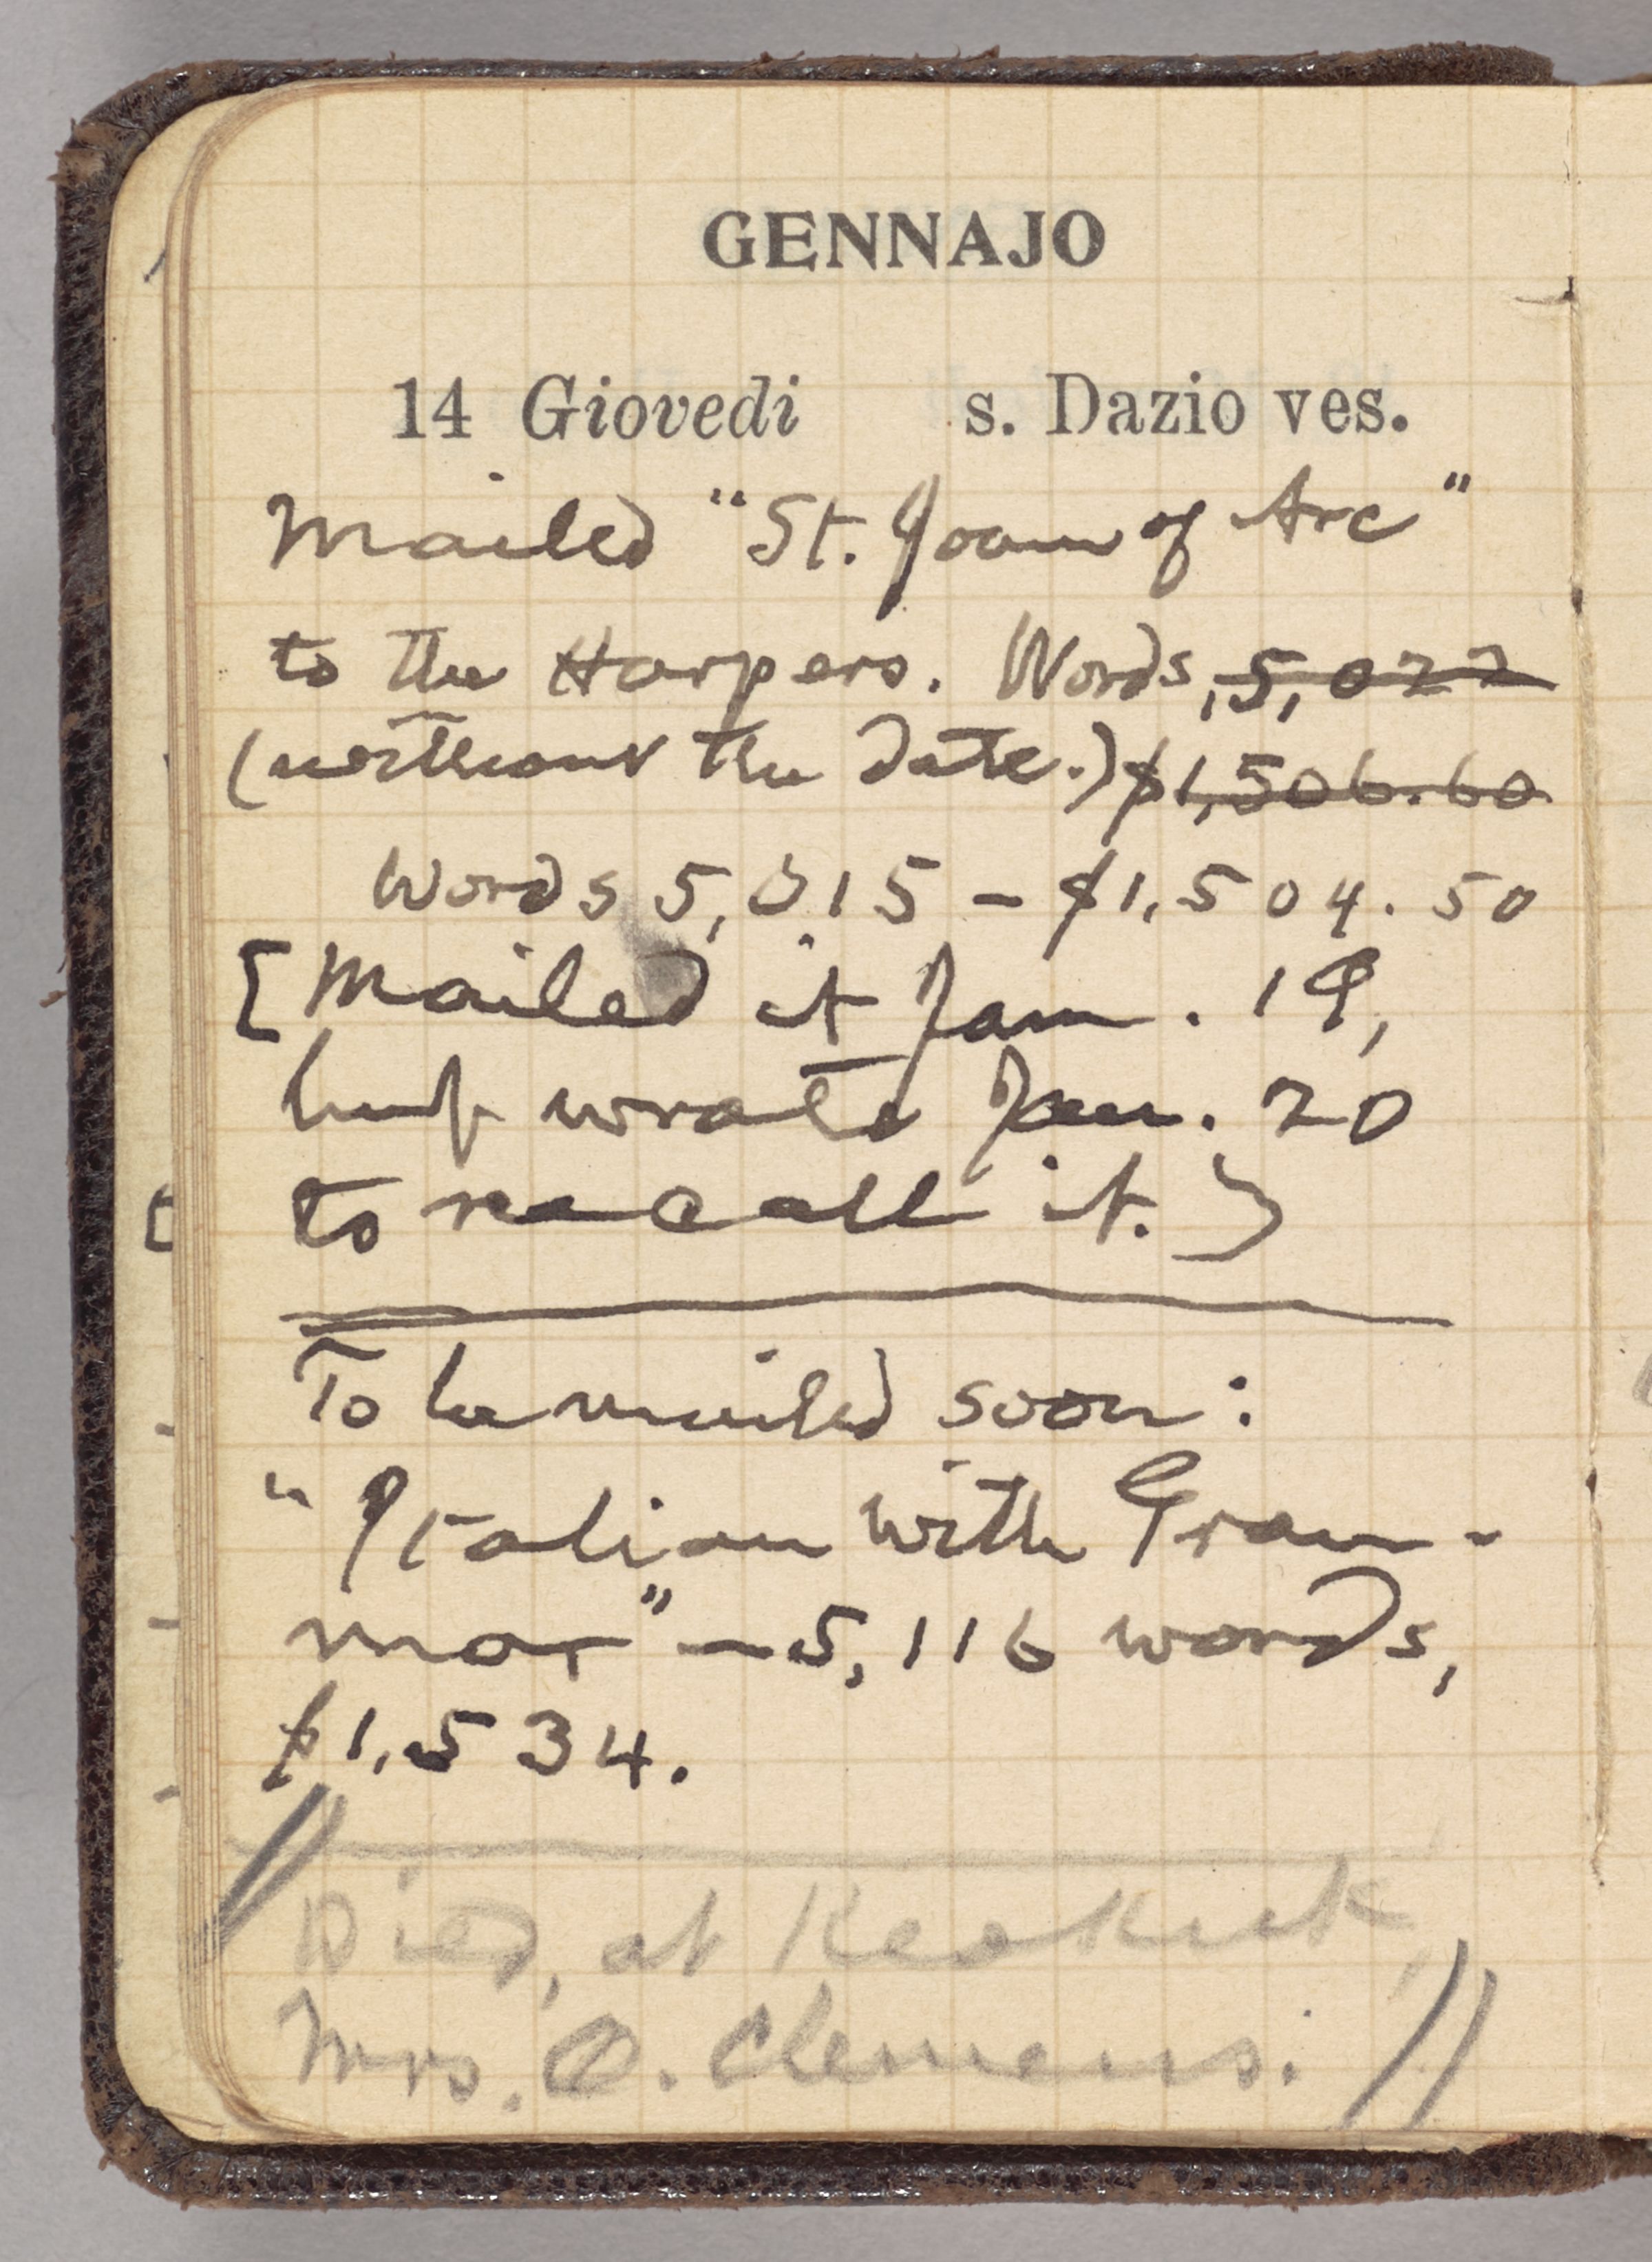 GENNAJO
14 Giovedi s. Dazio ves.
Mailed "St. Joan of Arc"
to the Harpers. Words, 5,022
(without the date.) $1,506.60
Words 5,015 – $1,504.50
[Mailed it Jan. 19,
but wrote Jan. 20
to recall it.]
To be mailed soon:
"Italian with Gram-
mar" – 5,116 words,
$1,534.
Died, at Keokuk,
Mrs. O. Clemens.